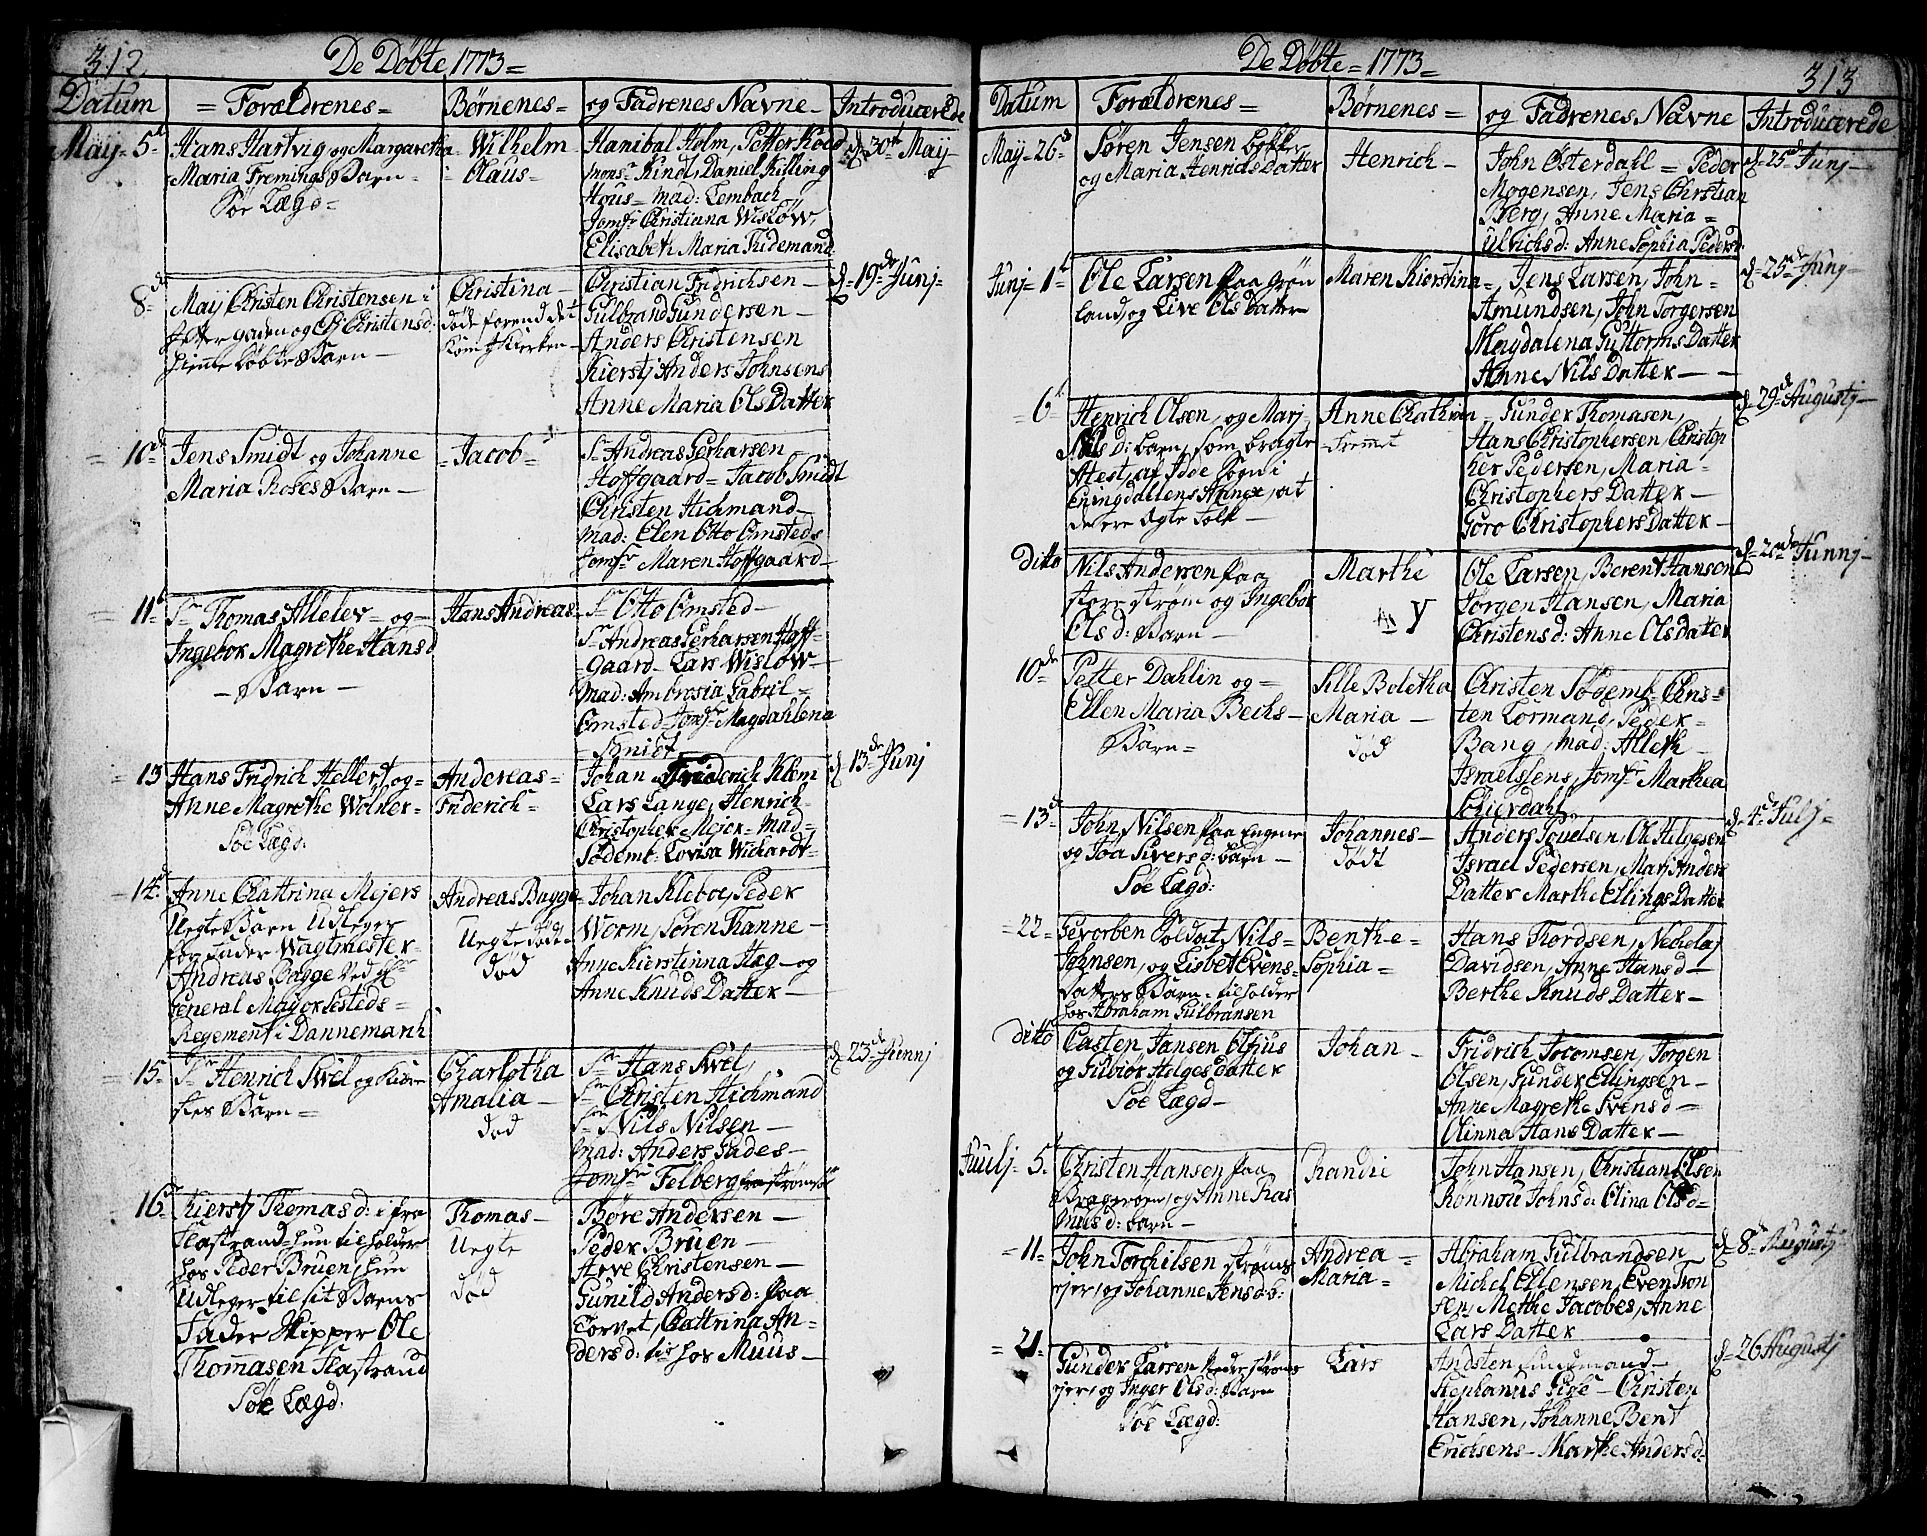 312
De Döbte 1773=
Datum = Forældrenes = Børnenes = og Fadrenes Navne - Introducerede
Maÿ- 5t
Hans Hartvig og Margaretha
Maria Fremings Barn -
Søe Lægd-
Wilhelm
Claus-
Hanibal Holm, Petter Koed
Mons: Kindt, Daniel Killing
Hous- Mad: Lembach
Jomf: Christiana Wisløw
Elisabeth Maria Tidemand
d-30t Maÿ-
8de
Maÿ Christen Christensen i
gaden og Christensd:
Barn-
Christina-
døde forend det
Kom Kierken-
Christian Fridrichsen-
Gulbrand Gundersen-
Anders Christensen
Kierstj Anders Johnsens
Anne Maria Ols Datter
d-19de Junj-
= 10de
Jens Smidt og Johanne
Maria Roses Barn-
=Jacob=
Sr Andreas Gerharsen
Hoffgaard= Jacob Smidt
Christen Hichmand-
Mad: Elen Otto Omsteds
Jomfr Maren Hoffgaard-
= 11t
Sr Thomas Allelev- og-
Ingebor Magrethe Hansd
- Barn -
Hans Andreas-
Sr Otto Omsted-
Sr Andreas Gerharsen Hoff-
gaard- Lars Wisløw-
Mad: Ambrosia Gabril=
Omsted Jomfr Magdahlena
- Smidt
= 13
Hans Fridrich Hellert og-
Anne Magrethe Wolner-
Søe Lægd:
Andereas-
Friderich-
Johan Friderich Klem
Lars Lange, Henrich-
Christopher Mejer= Mad-
Södemb: Lovisa Wichardt-
d-13de Junj
-14d
Anne Chatrina Mejers
Uegte Barn Udleger
for Fader Wagtmester-
Andreas Bagge ved Hr
General Major Lesteds=
Regement i Dannemarch
Andreas Bagge-
Uegte døde-
död
Johan Kleboe, Peder
Worm, Søren Thanne-
Anne Kierstinna Hæg- og
Anne Knuds Datter-
=15-
Sr Henrich Swel og Kiere-
stes Barn-=
Charlotha
Amalia-
död
Sr Hans Swel,
Sr Christen Hichmand
Sr Nils Nilsen-
Mad: Anders Gudes-
Jomfr Felberg fra Strømsøe
d-23de Junnj
16de
Kierstj Thomas d: i fra
Flastrand- hun tilholder
hos Peder Bruen, hun
Udleger til sit Barns
Fader Skipper Ole
Thomasen Flastrand
Søe Lægd:
Thomas-
Uegte
död
Børe Andersen-
Peder Bruen-
Arve Christensen-
Gunild Andersd: paa
Torvet, Cattrina An-
dersd: til hos Muus-
313
De Döbte= 1773=
Datum Forældrenes= Børnenes= og Fadrenes Navne Introducerede
Maÿ- 26de
Søren Jensen
og Maria Henrichs Datter
Henrich-
John Österdahl= Peder
Mogensen, Jens Christian
Berg, Anne Maria=
Ulrichsd: Anne Sophia Pedersd:
d-25de Junj-
Junj- 1t
Ole Larsen paa Grøn
land, og Live Ols Datter
Maren Kierstina=
Jens Larsen, John=
Amundsen, John Torgersen
Magdalena Guttorms Datter
Anne Nils Datter- -
d-25de Junj-
=6t
Henrich Olsen, og Marj-
Nils d: barn, som bragte
Atest, af Idde Sogn i
Enningdallens Annex, at
de ere Ægte Folk-
Anne Chathrina
-Fremmet
Gunder Thomasen,
Hans Christophersen Christop
her Pedersen, Maria=
Christophers Datter-
Goro Christophers Datter-
d-29de Augustj-
ditto
Nils Andersen paa
store strøm og Ingebor
Ols d: Barn-
Marthe
Ole Larsen, Berent Hansen
Jørgen Hansen, Maria
Christensd: Anne Olsdatter
d-20de Junnj-
10de
Petter Dahlin og=
Ellen Maria Bechs-
Barn=
Sille Boletha
Maria-
död
Christen Södemb- Chris=
ten Lormand, Peder-
Bang, Mad: Alleth-
Israelslens, Jomfr Marthea
Schierdahl
=13de
John Nilsen paa Engene
og Joa Sivers d: barn-
Søe Lægd:
Johannes-
dödt
Anders Pouelsen, Ole Helgesen
Israel Pedersen, Marj Anders
Datter Marthe Ellings Datter
d-4de Julj-
=22-
Gevorben Soldat Nils-
Johnsen, og Lisbet Evens-
datters Barn- tilholder
hos Abraham Gulbransen
Benthe-
Sophia-
Hans Thordsen, Nechelaj
Davidsen, Anne Hansd-
Berthe Knuds Datter-
ditto
Casten Jansen Olfius
og Gubiør Helges datter
Søe Lægd-
Johan-
Fridrich Jocomsen, Jørgen
Olsen, Gunder Ellingsen-
Anne Magrethe Svens d-
Olinna Hans Datter-
Juulj- 5t
Christen Hansen paa
Bragernæs, og Anne Ras
mus d: barn-
Randie
John Hansen, Christian Olsen
Rönnou Johns d: Olina Ols d-
=11-
John Torchilsen strøms
ejer, og Johanne Jens d: b:
Andrea-
Maria-
Abraham Gulbrandsen
Michel Ellensen, Even Tron
sen, Methe Jacobes, Anne
Lars Datter
d-8de Augustj
=21-
Gunder Larsen strøms
ejer, og Inger Ols d: Barn
Søe Lægd:
Lars
Andsten Lundmand-
Stephanus Gise- Christen
Hansen, Johanne Bent
Erichsens- Marthe Anders d:
d-26 Augustj